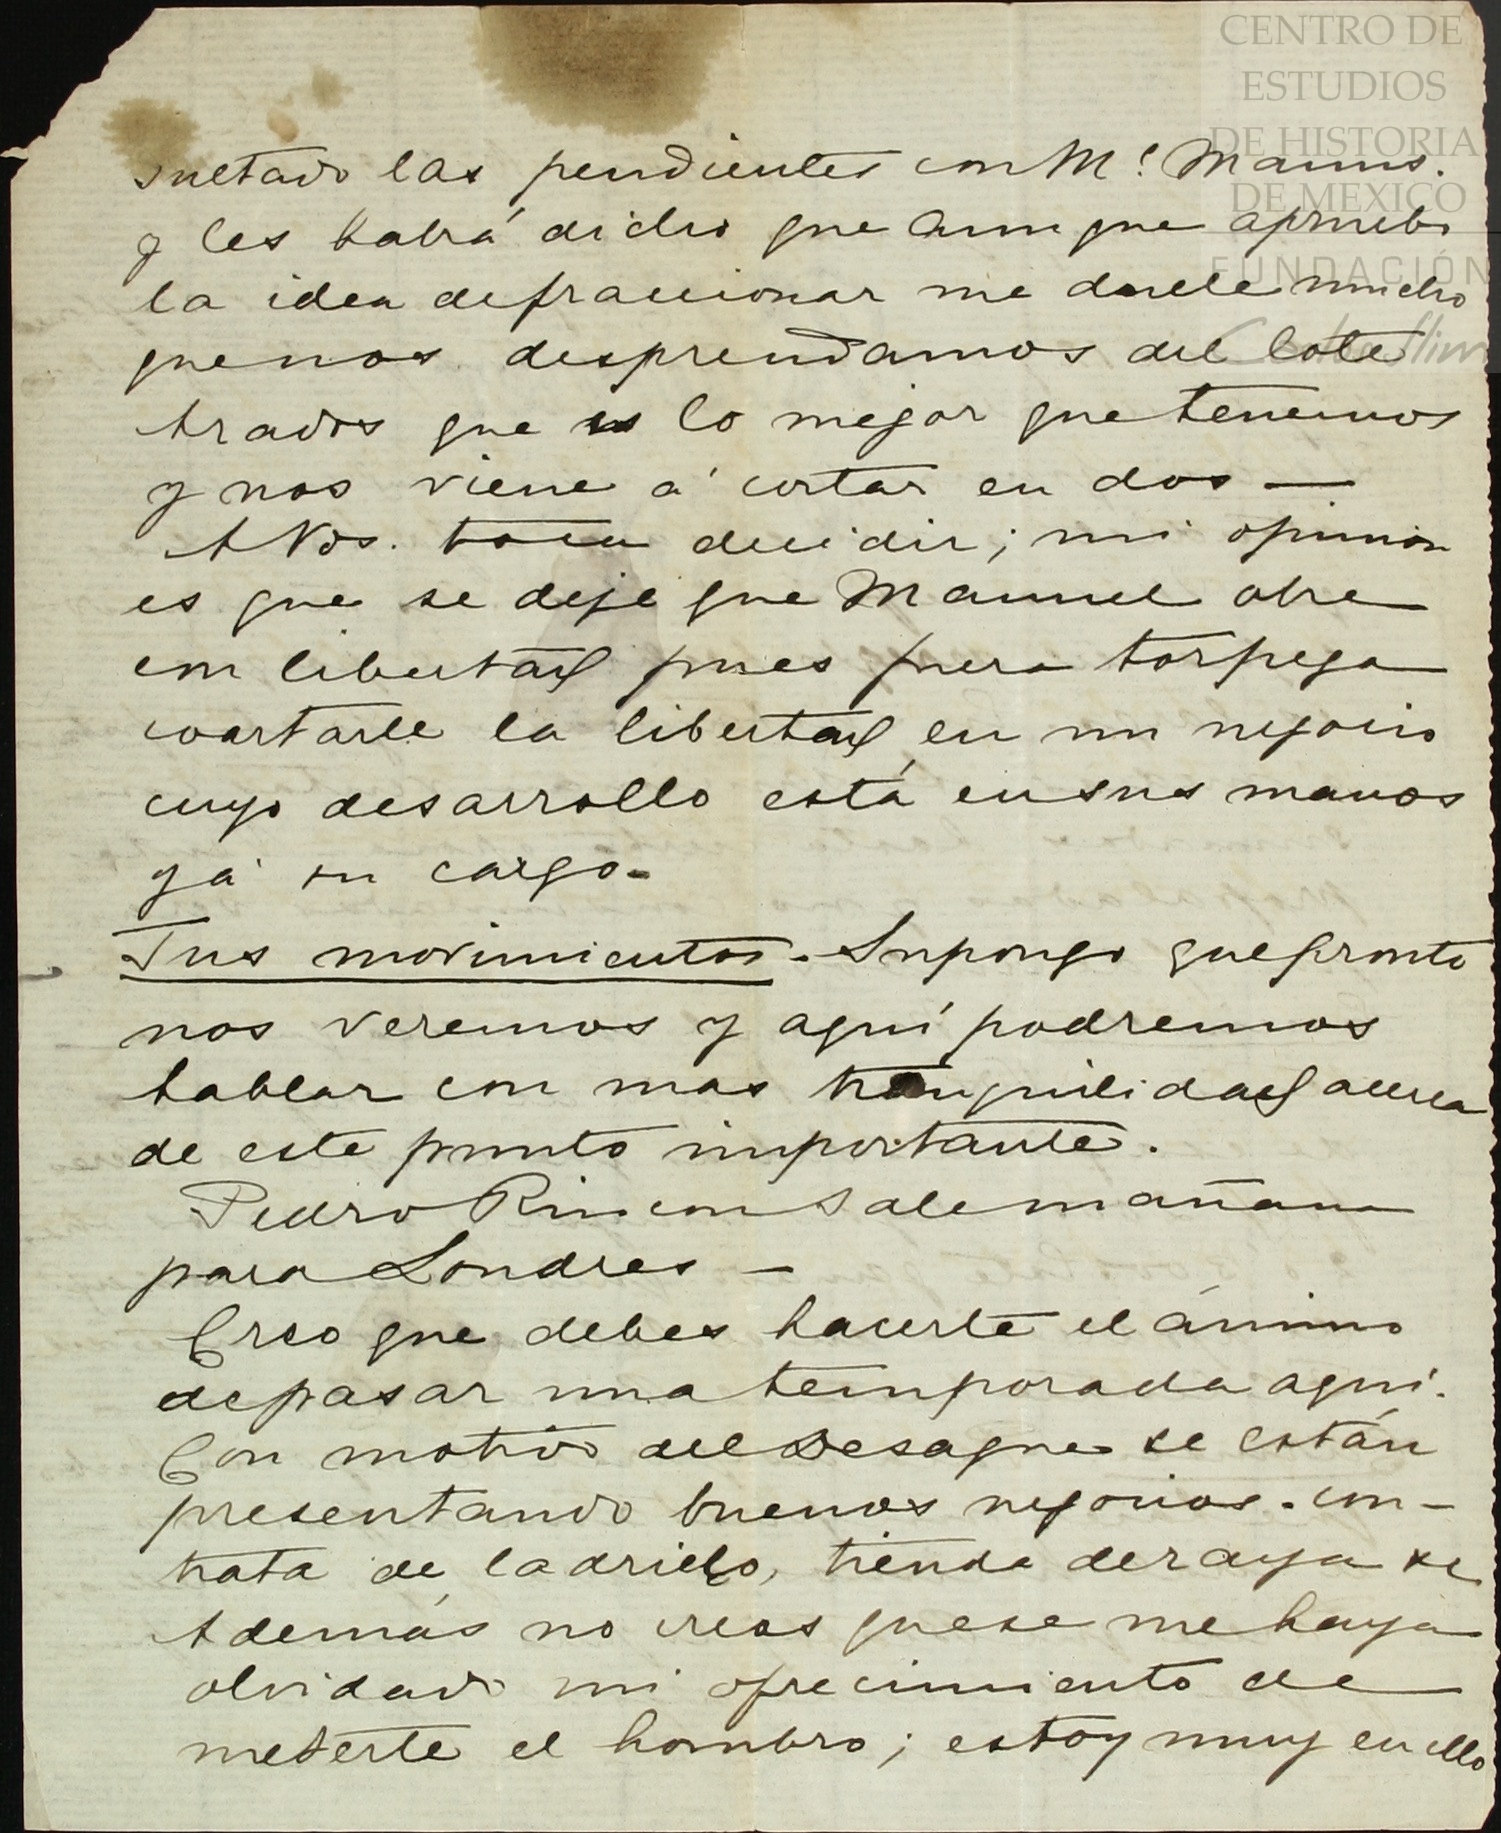 CENTRO DE
ESTUDIOS
DE HISTORIA
DE MEXICO
FUNDACIÓN
Carlos Slim
sultado las pendientes con Mr. Manns.
y les habrá dicho que aunque apruebo
la idea de fraccionar me duele mucho
que nos desprendamos del lote
Arados que es lo mejor que tenemos
y nos viene á cortar en dos —
A Vds. toca decidir; mi opinion
es que se deje que Manuel obre
con libertad pues fuera torpeza
coartarle la libertad en un negocio
cuyo desarrollo está en sus manos
y á su cargo.
Tus movimientos. Supongo que pronto
nos veremos y aquí podremos
hablar con mas tranquilidad acerca
de este punto importante.
Pedro Rincon sale mañana
para Londres —
Creo que debes hacerte el ánimo
de pasar una temporada aquí.
Con motivo del Desague se están
presentando buenos negocios. con-
trata de ladrillo, tienda de raya &c
Además no creas que se me haya
olvidado mi ofrecimiento de
meterte el hombro; estoy muy en ello